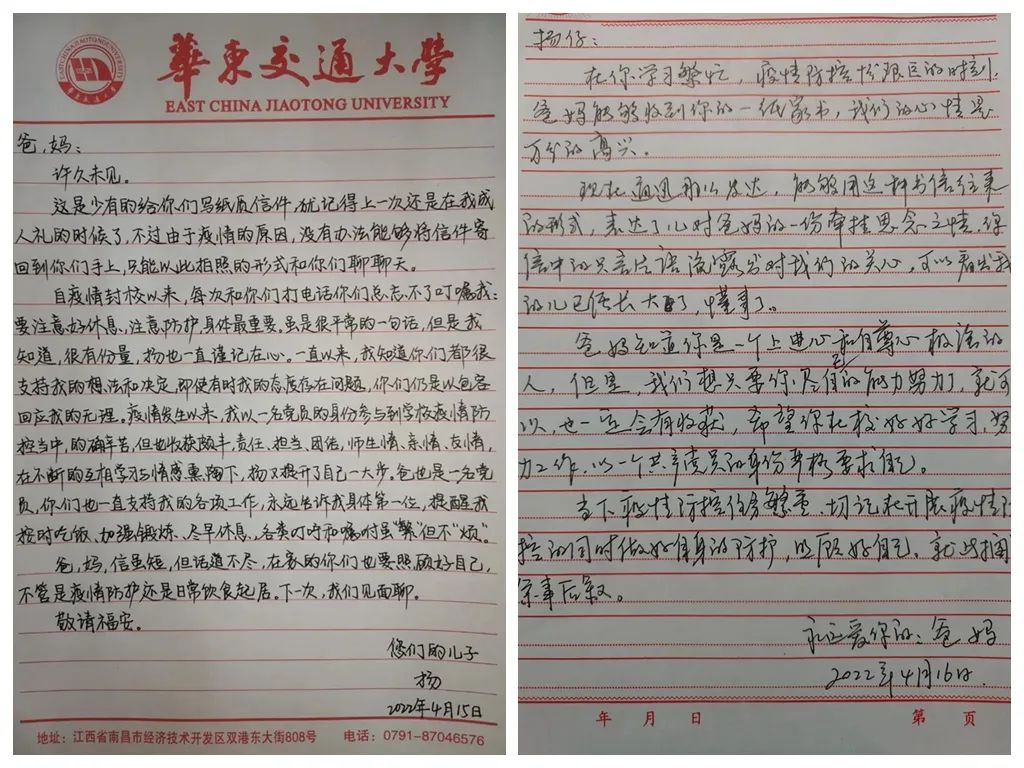 華東交通大學
EAST CHINA JIAOTONG UNIVERSITY
爸,妈:
许久未见。
这是少有的给你们写纸质信件,犹记得上一次还是在我成
人礼的时候了,不过由于疫情的原因,没有办法能够将信件寄
回到你们手上,只能以此拍照的形式和你们聊聊天。
自疫情封校以来,每次和你们打电话你们总忘不了叮嘱我:
要注意好休息、注意防护,身体最重要。虽是很平常的一句话,但是我
知道,很有份量,扬也一直谨记在心。一直以来,我知道你们都很
支持我的想法和决定,即使有时我的态度存在问题,你们仍是以包容
回应我的无理。疫情发生以来,我以一名党员的身份参与到学校疫情防
控当中,的确辛苦,但也收获颇丰,责任、担当、团结,师生情、亲情、友情,
在不断的互相学习与情感熏陶下,扬又提升了自己一大步。爸也是一名党
员,你们也一直支持我的各项工作,永远告诉我身体第一位,提醒我
按时吃饭、加强锻炼、尽早休息,各类叮咛和嘱咐虽“繁”但不“烦”。
爸,妈,信虽短,但话道不尽,在家的你们也要照顾好自己,
不管是疫情防护还是日常饮食起居。下一次,我们见面聊。
敬请福安。
您们的儿子
扬
2022年4月15日
地址:江西省南昌市经济技术开发区双港东大街808号 电话:0791-87046576
扬仔:
在你学习繁忙,疫情防控吃艰巨的时刻,
爸妈能够收到你的一纸家书,我们的心情是
万分的高兴。
现在通迅那么发达,能够用这种书信往来
的形式,表达了儿对爸妈的一份牵挂思念之情,你
信中的只言片语流露出对我们的关心,可以看出我
的儿已经长大了,懂事了。
爸妈知道你是一个上进心和自尊心极强的
人,但是,我们想只要你尽自己的能力努力了,就可
以,也一定会有收获,希望你在校好好学习,努
力工作,以一个共产党员的身份严格要求自己。
当下疫情防控任务繁重,切记在开展疫情防
控的同时做好自身的防护,照顾好自己。就此搁笔
余事后叙。
永远爱你的:爸妈
2022年4月16日.
年 月 日 第 页